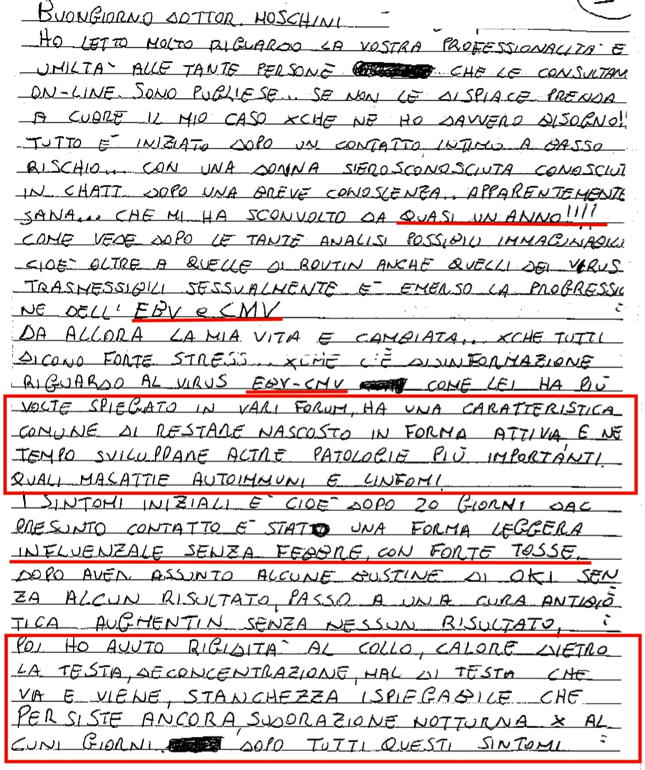 BUONGIORNO DOTTOR. MOSCHINI
HO LETTO MOLTO RIGUARDO LA VOSTRA PROFESSIONALITA' E
UMILTA' ALLE TANTE PERSONE CHE LE CONSULTAN
ON-LINE. SONO PUGLIESE... SE NON LE DISPIACE PRENDA
A CUORE IL MIO CASO XCHE NE HO DAVVERO BISOGNO!!
TUTTO E' INIZIATO DOPO UN CONTATTO INTIMO A BASSO
RISCHIO... CON UNA DONNA SIEROSCONOSCIUTA CONOSCIUT
IN CHATT DOPO UNA BREVE CONOSCENZA.. APPARENTEMENTE
SANA... CHE MI HA SCONVOLTO DA QUASI UN ANNO!!!!
COME VEDE DOPO LE TANTE ANALISI POSSIBILI IMMAGINABILI
CIOE' OLTRE A QUELLE DI ROUTIN ANCHE QUELLI DEI VIRUS
TRASMESSIBILI SESSUALMENTE E' EMERSO LA PROGRESSIO
NE DELL' EBV e CMV
DA ALLORA LA MIA VITA E CAMBIATA... XCHE TUTTI
DICONO FORTE STRESS... XCHE C'E' DISINFORMAZIONE
RIGUARDO AL VIRUS EBV-CMV COME LEI HA PIÙ
VOLTE SPIEGATO IN VARI FORUM, HA UNA CARATTERISTICA
COMUNE DI RESTARE NASCOSTO IN FORMA ATTIVA, E NE
TEMPO SVILUPPARE ALTRE PATOLOGIE PIÙ IMPORTANTI
QUALI MALATTIE AUTOIMMUNI E LINFOMI.
I SINTOMI INIZIALI E' CIOE' DOPO 20 GIORNI DAL
PRESUNTO CONTATTO E' STATO UNA FORMA LEGGERA
INFLUENZALE SENZA FEBBRE, CON FORTE TOSSE.
DOPO AVER ASSUNTO ALCUNE BUSTINE DI OKI SEN
ZA ALCUN RISULTATO, PASSO A UNA CURA ANTIBIO
TICA AUGMENTIN SENZA NESSUN RISULTATO,
POI HO AVUTO RIGIDITA' AL COLLO, CALORE DIETRO
LA TESTA, DECONCENTRAZIONE, MAL DI TESTA CHE
VA E VIENE, STANCHEZZA ISPIEGABILE CHE
PERSISTE ANCORA, SUDORAZIONE NOTTURNA X AL
CUNI GIORNI. DOPO TUTTI QUESTI SINTOMI